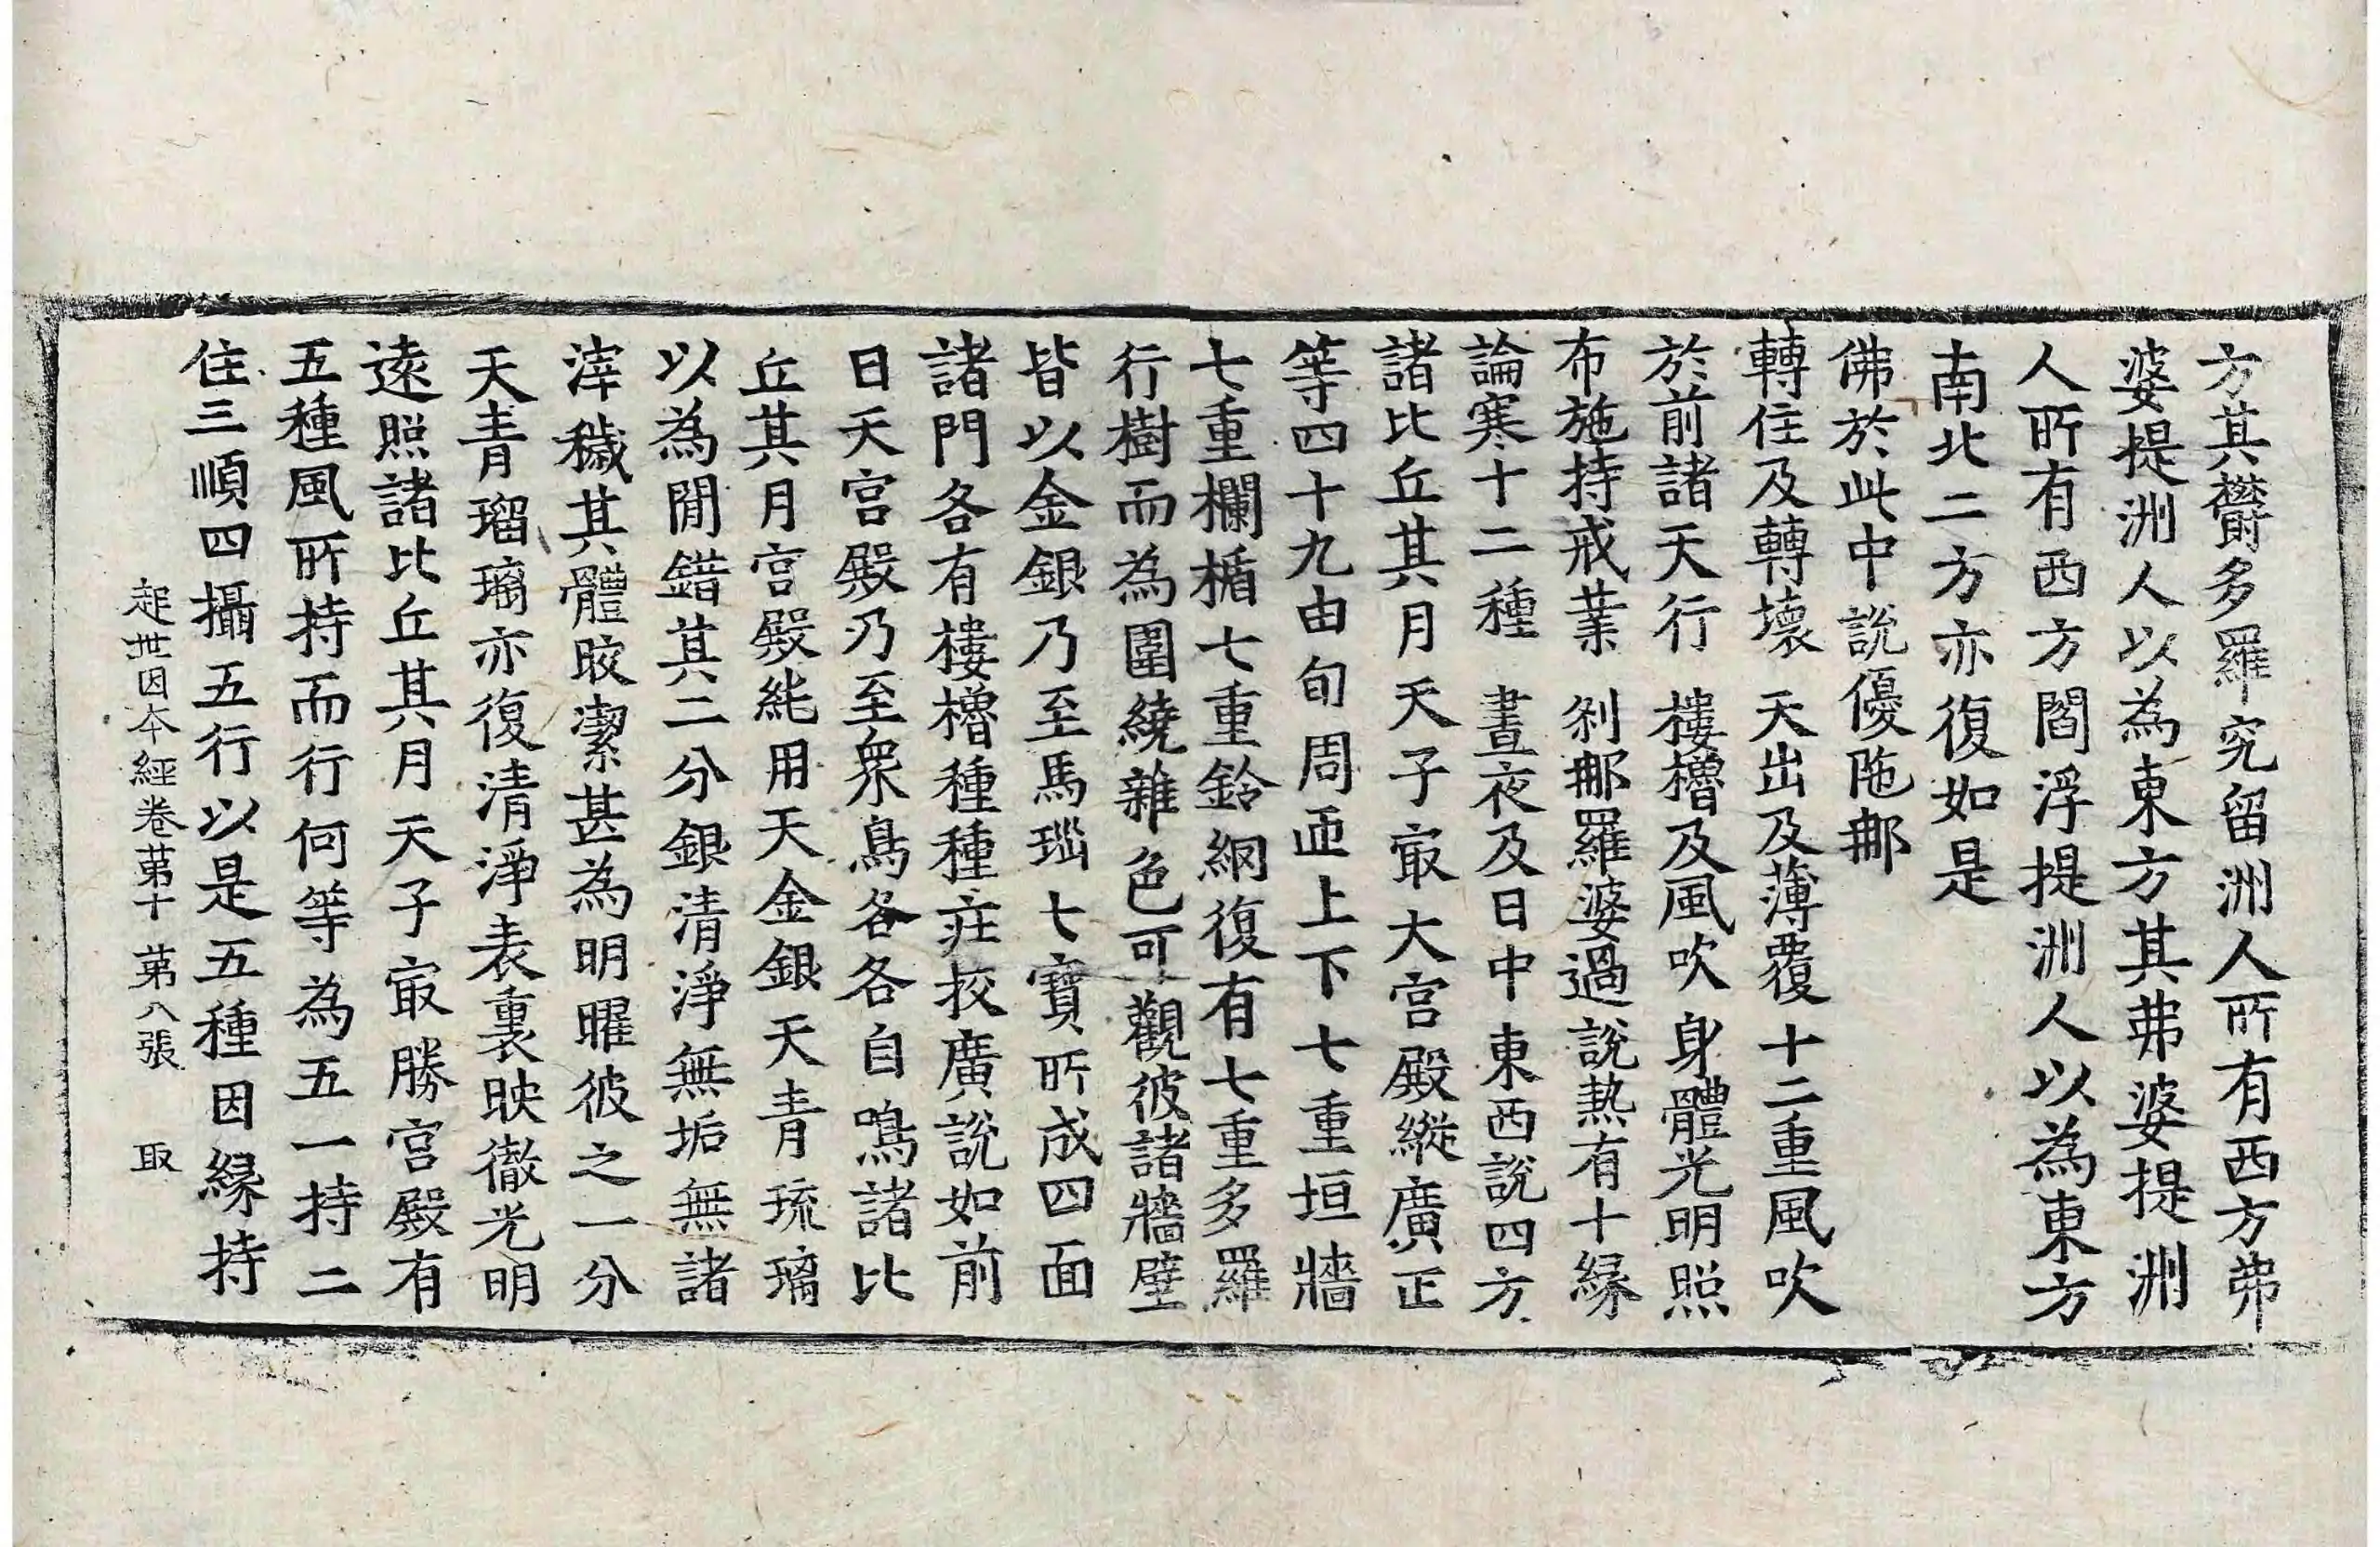 方其欝多羅究留洲人所有西方弗
婆提洲人以為東方其弗婆提洲
人所有西方閻浮提洲人以為東方
南北二方亦復如是
佛於此中說優陁那
轉住及轉壞　天出及薄覆　十二重風吹
於前諸天行　樓櫓及風吹　身體光明照
布施持戒業　刹那羅婆過　說熱有十緣
論寒十二種　晝夜及日中　東西說四方
諸比丘其月天子㝡大宮殿縱廣正
等四十九由旬周迊上下七重垣牆
七重欄楯七重鈴網復有七重多羅
行樹而為圍繞雜色可觀彼諸牆壁
皆以金銀乃至馬瑙七寶所成四面
諸門各有樓櫓種種莊挍廣說如前
日天宮殿乃至衆鳥各各自鳴諸比
丘其月宮殿純用天金銀天青琉璃
以為閒錯其二分銀清淨無垢無諸
滓穢其體皎潔甚為明曜彼之一分
天青瑠璃亦復清淨表裏映徹光明
遠照諸比丘其月天子㝡勝宮殿有
五種風所持而行何等為五一持二
住三順四攝五行以是五種因緣持
起世因本經卷第十　第八張　取